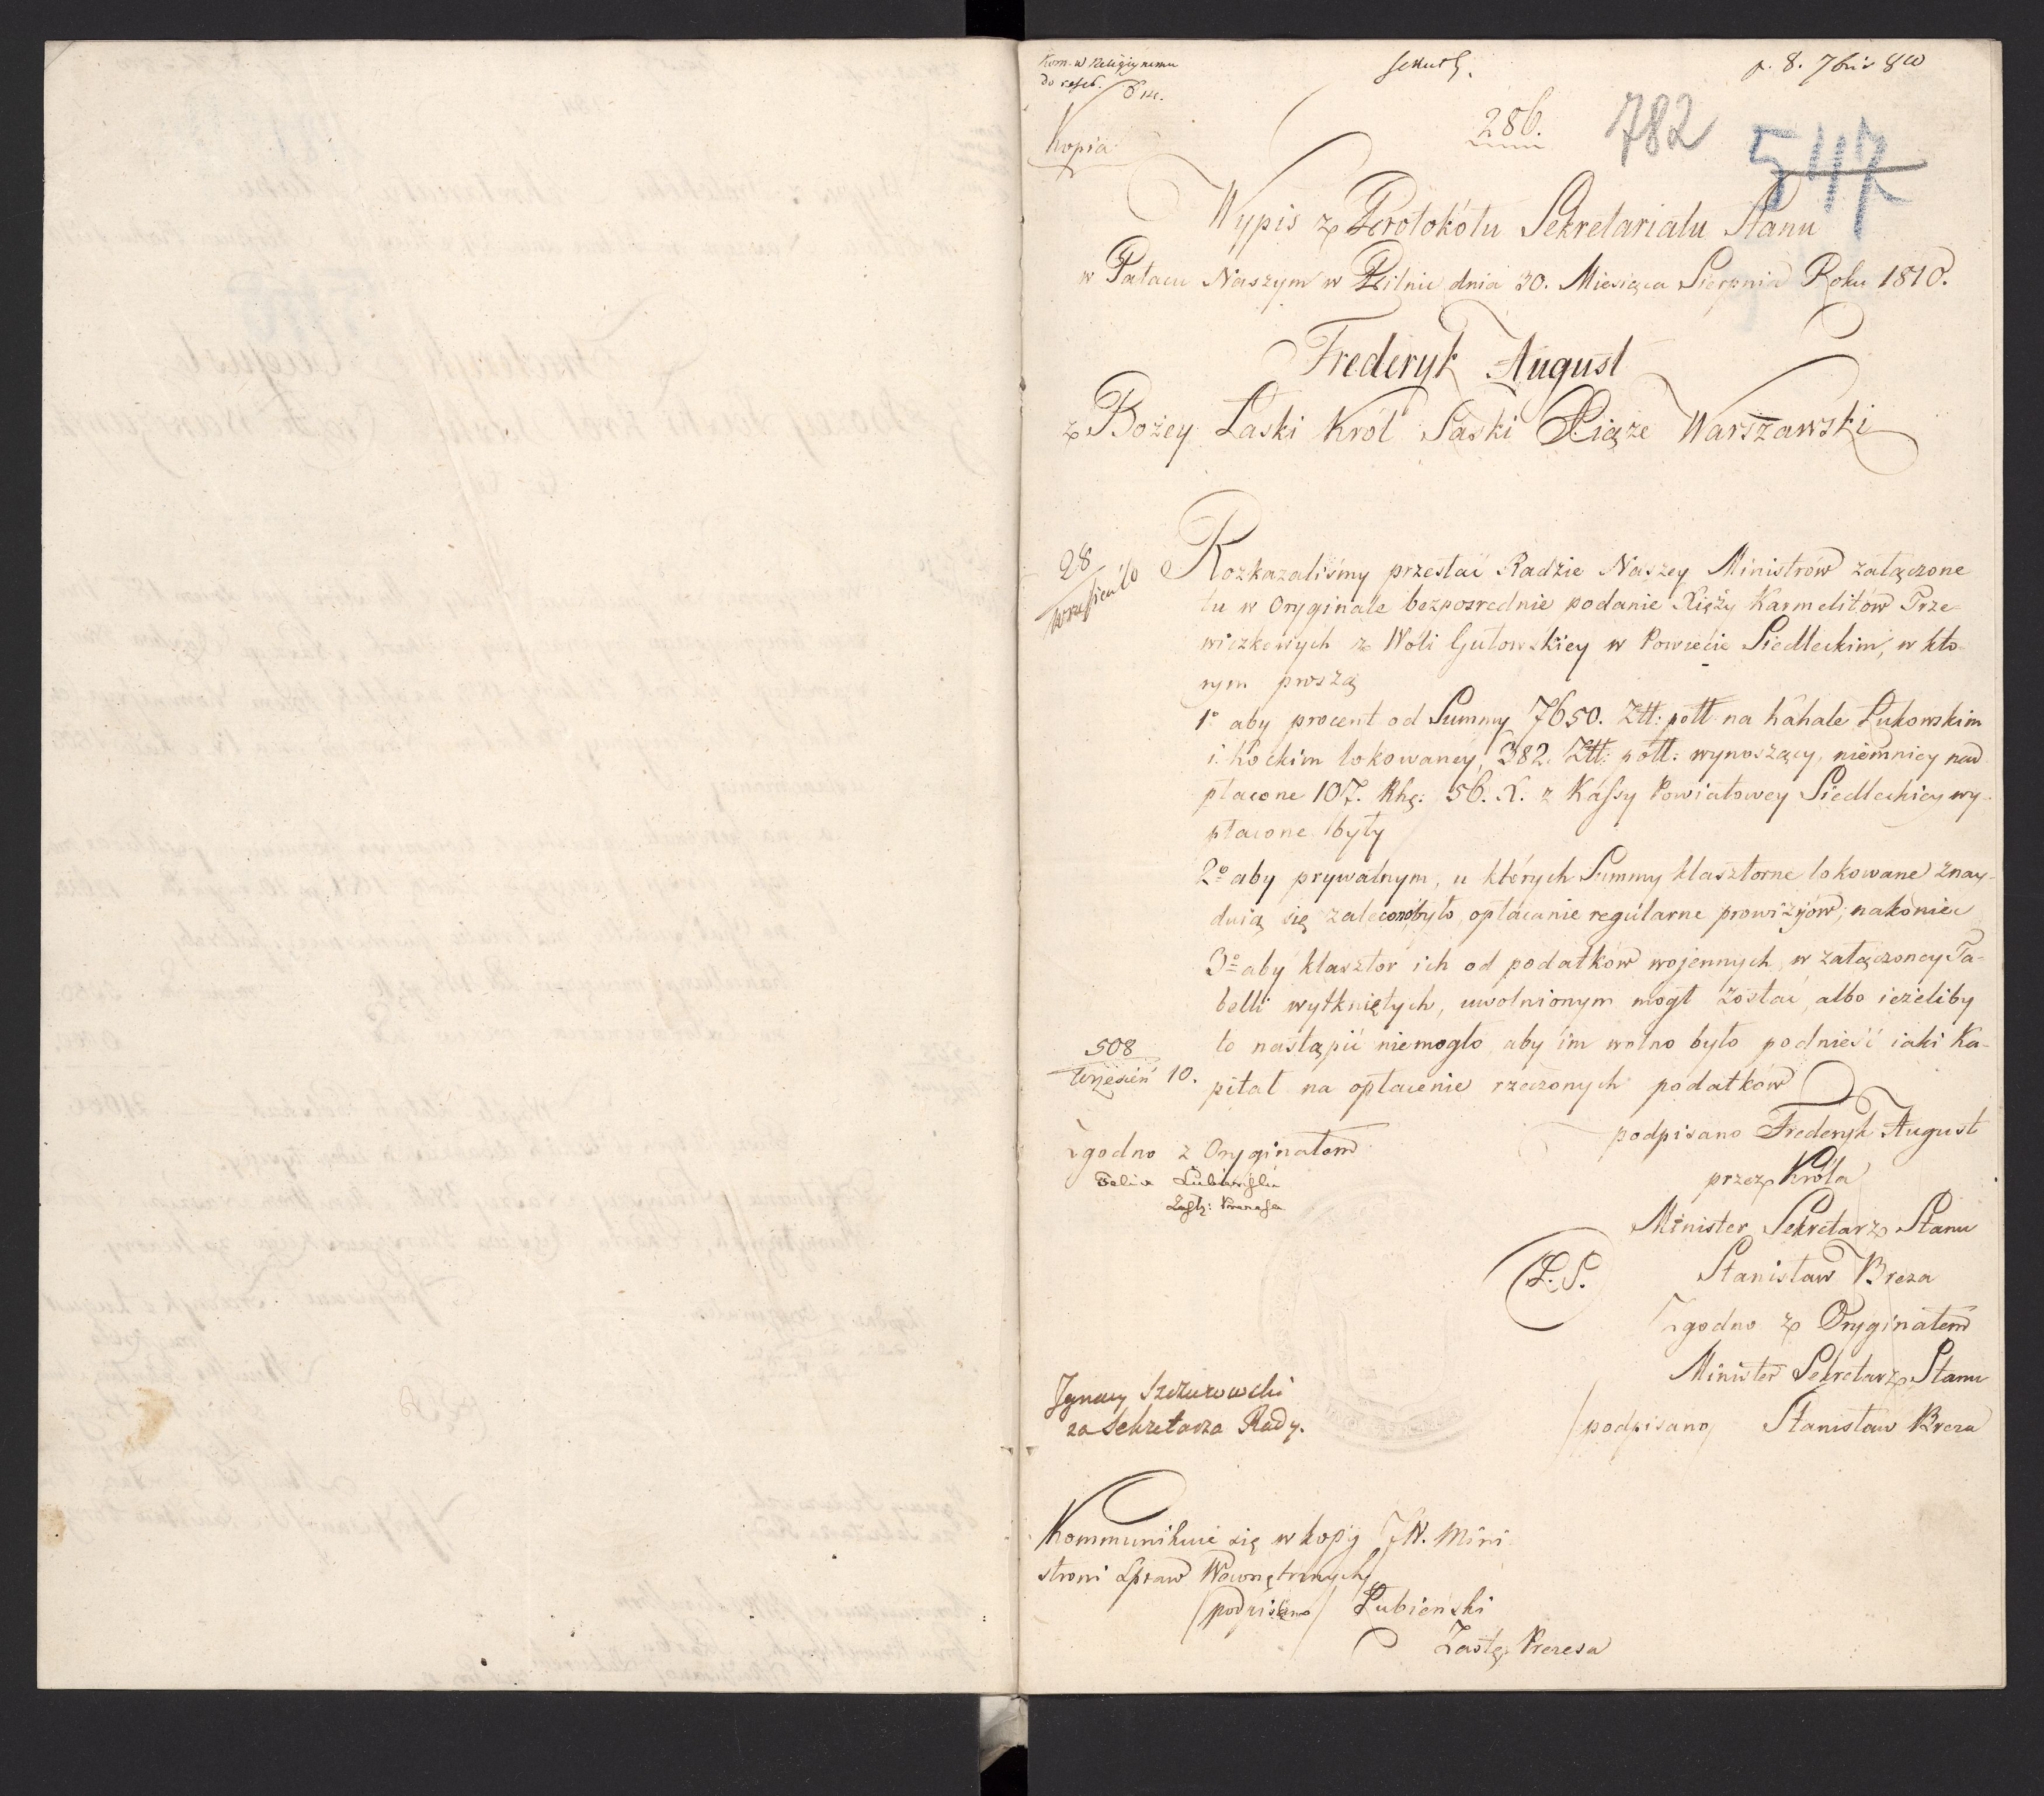 Kopia
286.
782
547
Wypis z Protokółu Sekretariatu Stanu
w Pałacu Naszym w Pilnic dnia 30. Miesiąca Sierpnia Roku 1810.
Frederyk August
z Bożey Łaski Król Saski Xiąże Warszawski
28
września
Rozkazaliśmy przesłać Radzie Naszey Ministrów załączone
tu w Oryginale bezpośrednie podanie Xięży Karmelitów Trze-
wiczkowych z Woli Gułowskiey w Powiecie Siedleckim, w któ-
rym proszą
1º aby procent od Summy 7650. Ztt: pott: na Kahale Łukowskim
i Kockim lokowaney, 382. Ztt: pott: wynoszący, niemniey nad
płacone 107. Rhg: 56. X. z Kassy Powiatowey Siedleckiey wy-
płacone były
2º aby prywatnym, u których Summy klasztorne lokowane znay-
duią się zalecono było, opłacanie regularne prowizyów; nakoniec
3º aby klasztor ich od podatków wojennych, w załączoney Ta-
belli wytkniętych, uwolnionym mógł zostać, albo ieżeliby
to nastąpić niemogło, aby im wolno było podnieść iaki Ka-
pitał na opłacenie rzeczonych podatków
508
Wrzesień 10.
podpisano Frederyk August
przez Króla
Minister Sekretarz Stanu
(L.S.) Stanisław Breza
Zgodno z Oryginałem
Minister Sekretarz Stanu
/podpisano/ Stanisław Breza
Zgodno z Oryginałem
Felix Łubieński
Zastę: Prezesa
Ignacy Szczurowski
za Sekretarza Rady.
Kommunikuie się w kopij JW. Mini-
strowi Spraw Wewnętrznych
/podpisano/ Łubieński
Zastę. Prezesa